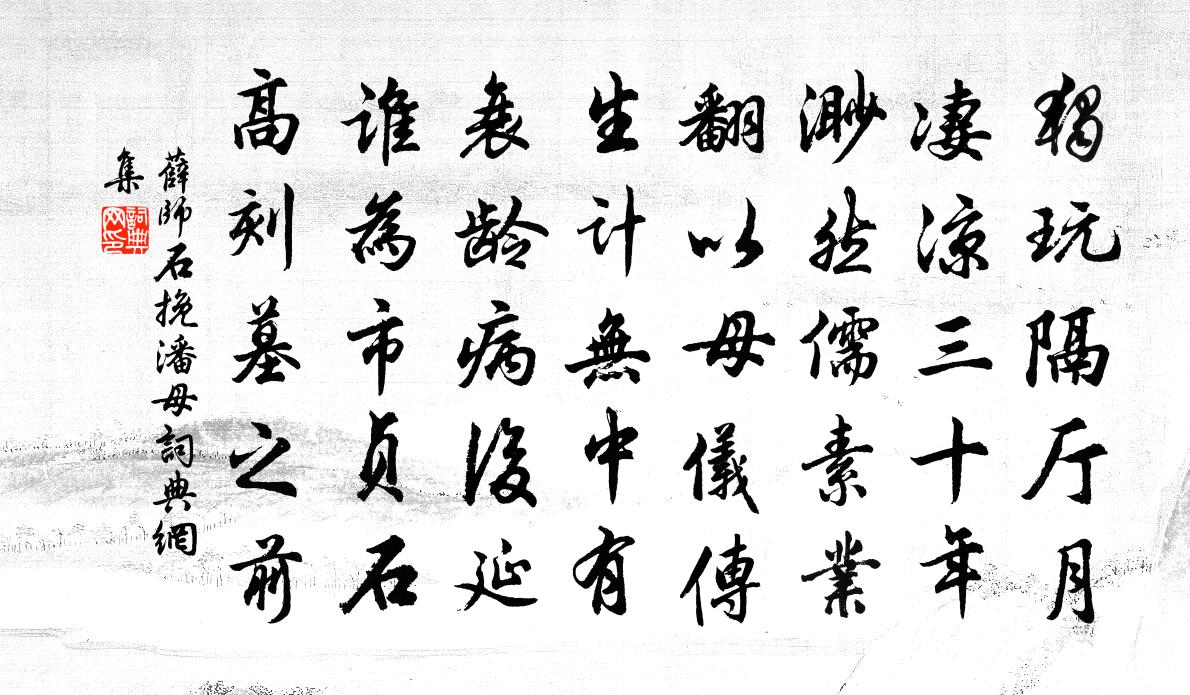 獨玩隔厅月
凄涼三十年
渺然儒素業
翻以母儀傳
生計無中有
衰齡病後延
誰為市貞石
高刻墓之前
薛師石挽潘母詞典網
集
詞典网印